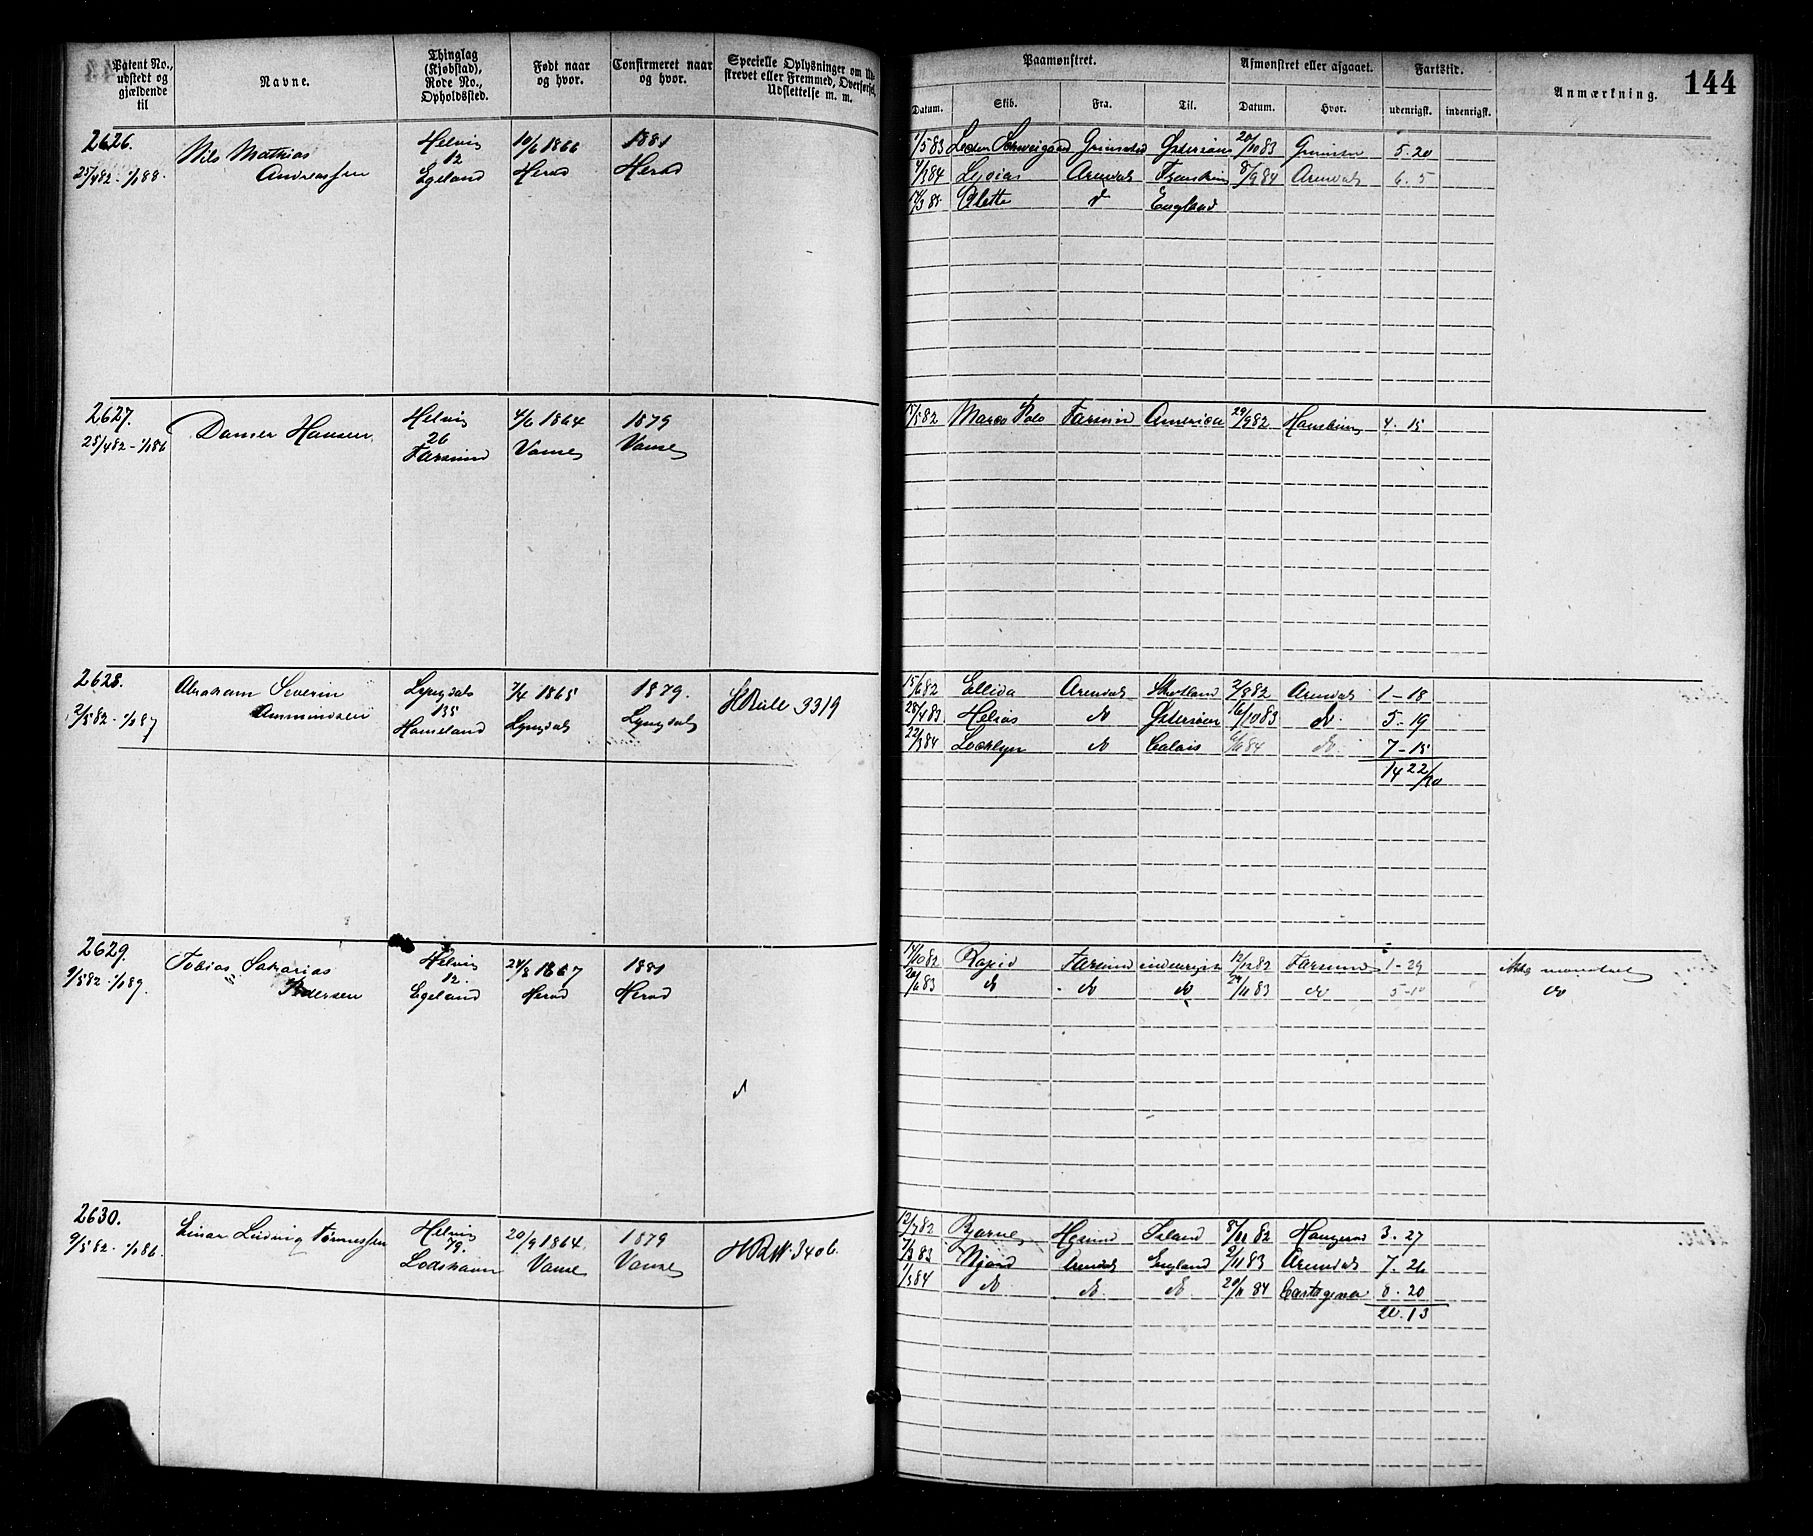 Patent No., udstedt og gjældende til
Navne.
Thinglag (Kjøbstad), Rode No., Opholdssted.
Født naar og hvor.
Confirmeret naar og hvor.
Specielle Oplysninger om Ud-
strevet eller Fremmed, Overførsel,
Udslettelse m. m.
Paamønstret.
Afmønstret eller afgaaet.
Fartstid.
Anmærkning.
144
Datum. Skib. Fra. Til. Datum. Hvor. udenrigsk. indenrigsk.
2626. Nils Mathias Helvig 10/6 1866 1881
25/4 82 - 1/1 88. Andreassen 12 Egeland Herad Herad
1/5 83 Schweigaard Grimstad Østersøen 20/10 83 5-20
84 Lydias Arendal 8/9 84 Arendal 6. 5
Alette do England
2627. Hansen Helvig 4/6 1864 1879
25/4 82 - 1/1 86 26 Farsund Vanse Vanse
82 Marco Polo Farsund America 29/9 82 4-15
2628. Abraham Severin Lyngdal 7/4 1865 1879. 3319
2/5 82 - 1/1 87 Ammundsen 135 Hameland Lyngdal Lyngdal
15/6 82 Ellida Arendal Skotland 2/8 82 Arendal 1-18
28/4 83 Helios do Østersøen 16/10 83 do 5-19
22/3 84 Lochlyn do Calais 84 do 7-15
14 22/30
2629. Tobias Sakarias Helvig 24/8 1867 1881
9/5 82 - 1/1 89. Pedersen 12. Egeland Herad Herad
14/10 82 Rapid Farsund indenrigsk 12/12 82 Farsund 1-29
20/6 83 do do do 29/11 83 do do
2630. Einar Ludvig Tønnessen Helvig 20/9 1864 1879 3406
9/5 82 - 1/1 86. 79. Lodshavn Vanse Vanse
12/7 82 Bjarne 8/11 82 3-27
7/3 83 Njord Arendal England 9/11 83 Arendal 7-26
84 do do do 20/11 84 Cartagena 8-20
20.13